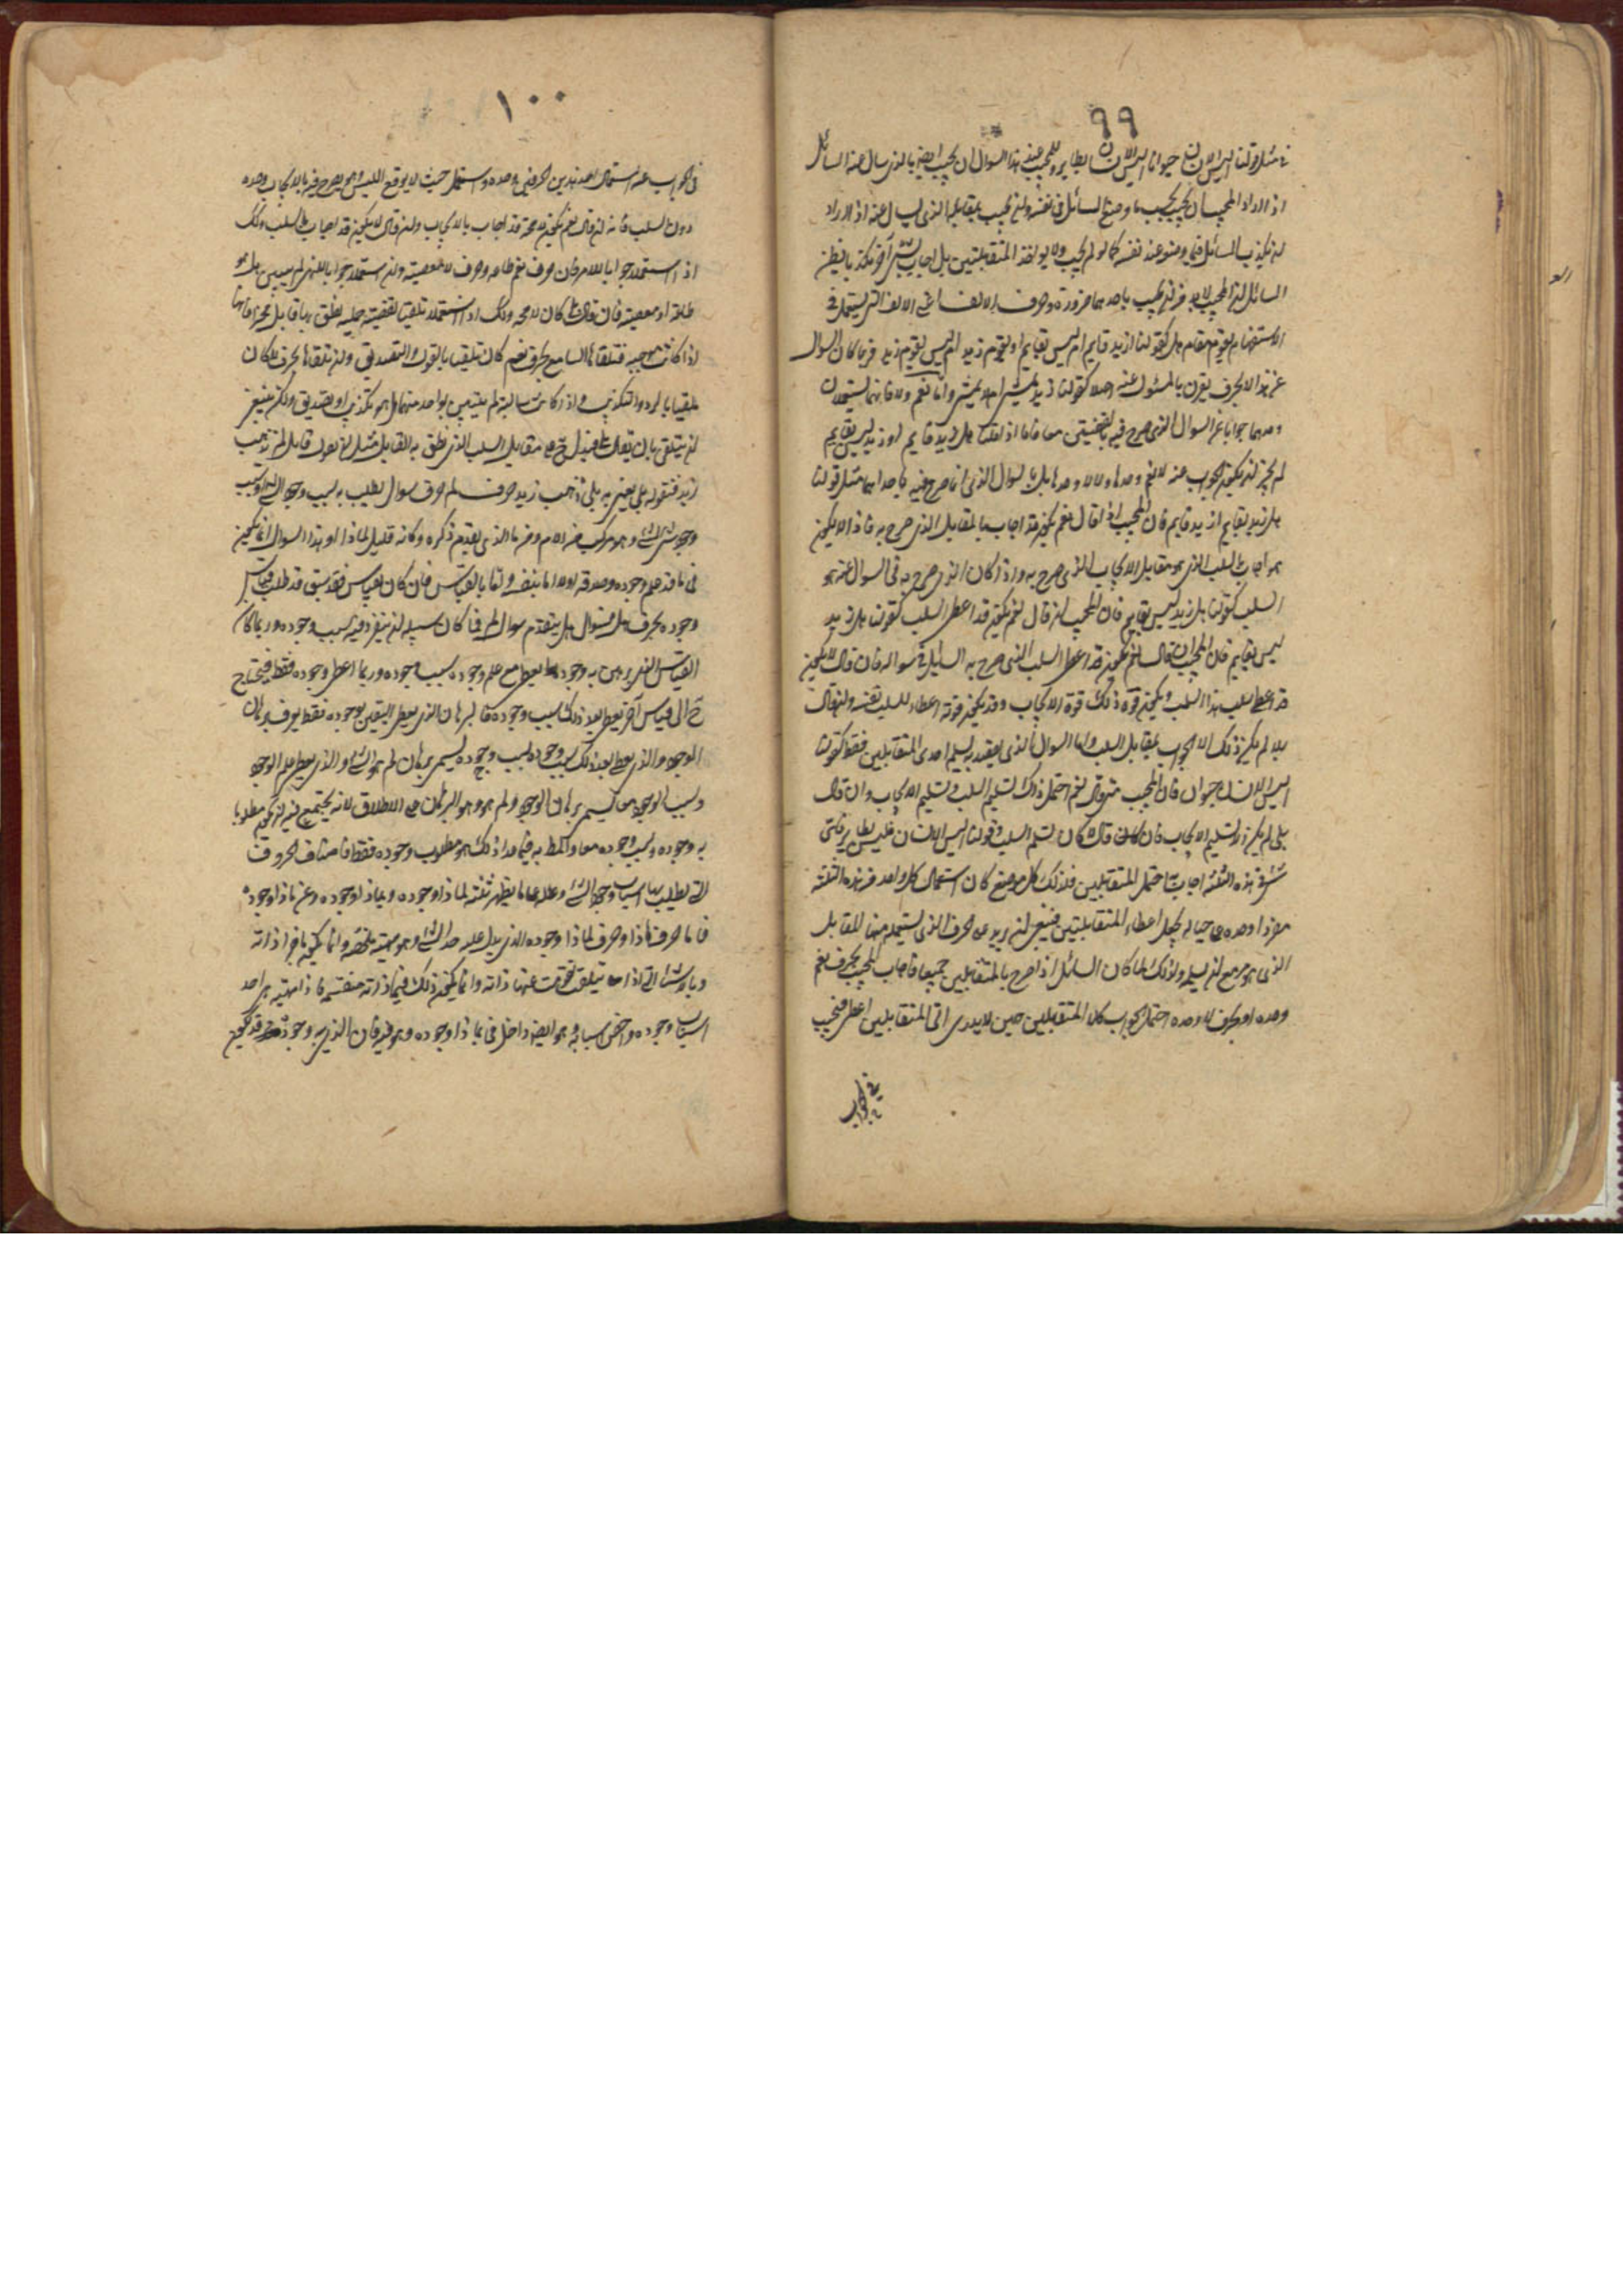 ٩٩
في مثل قولنا اليس الانسان حيوانا اليس الانسان بطاير وللمجيب عن هذا السوال ان يجيب ايضا بالذي سال عنه السائل
اذا اراد المجيب ان يجيب بحسب ما وضع السائل في نفسه وان يجيب بمقابله الذي لم يسال عنه اذا اراد
ان يكذب السائل فيما وضعه عند نفسه كما لو لم يجيب ولا بواحد المتقابلين بل اجاب بشئ آخر مكذبا بظن
السائل ان المجيب لا بد من ان يجيب باحدهما ضرورة وحرف الالف اعني الالف التي يستعمل في
الاستفهام يقوم مقام هل كقولنا ازيد قايم ام ليس بقايم او يقوم زيد ام ليس يقوم زيد فربما كان السوال
عن هذا الحرف يقرن بالمسئول عنه اصلا كقولنا زيد يمشي او لا يمشي واما نعم ولا فانهما يستعملان
وحدهما جوابا عن السوال الذي صرح فيه بالنقيضين معا فانا اذا قلنا هل زيد قايم او زيد ليس بقايم
لم يجز ان يكون الجواب عنه لا نعم وحدها ولا لا وحدها بل السوال الذي انما صرح فيه باحداهما مثل قولنا
هل زيد بقايم ازيد قايم فان المجيب اذا قال نعم يكون قد اجاب بالمقابل الذي صرح به فاذا قال لا يكون
هو اجاب بالسلب الذي هو مقابل الايجاب الذي صرح به واذا كان الذي صرح به في السوال عنه هو
السلب كقولنا هل زيد ليس بقايم فان المجيب ان قال نعم يكون قد اعطى السلب كقولنا هل زيد
ليس بقايم فان المجيب ان قال نعم يكون قد اعطى السلب الذي صرح به السائل في سواله فان قال لا يكون
قد اعطى سلب هذا السلب ويكون قوة ذلك قوة الايجاب وقد يكون قوته اعطاء للسلب نفسه وان قال
بلا لم يكن ذلك الا الجواب بمقابل السلب واما السوال الذي يقصد به تسليم احدى المتقابلين فقط كقولنا
اليس الانسان حيوان فان المجيب متى قال نعم احتمل ذلك تسليم السلب وتسليم الايجاب وان قال
بلى لم يكن الا تسليم الايجاب فان قال لا كان تسلم السلب وقولنا اليس الانسان فليس بطاير فاتى
شئ من هذه الثلثة اجاب به احتمل المتقابلين فلذلك كل موضع كان استعمال كل واحد من هذه الثلثة
مفردا وحده على حياله يخيل اعطاء المتقابلتين فينبغي ان يزيد على الحرف الذي يستعمله منها المقابل
الذي هو مزمع ان يسلمه ولذلك لما كان السائل اذا صرح بالمتقابلين جميعا فاجاب المجيب بحرف نعم
وحده او بحرف لا وحده احتمل الجواب كلى المتقابلين حين لا يدرى اتى المتقابلين اعطى فيجب
في الجواب
١٠٠
في الجواب عنه استعمال احد هذين الحرفين وحده واستعمل حيث لا يوقع اللبس وهو يصرح فيه بالايجاب وحده
دون السلب فانه ان قال نعم يكون لا محة قد اجاب بالايجاب وان قال لا يكون قد اجاب بالسلب وذلك
اذا استعمل جوابا للامر فان حرف نعم طاعة وحرف لا معصية وان استعمل جوابا للنهي لم يتبين هل هو
طاعة او معصية فان قال بلى كان لا محة وذلك اذا استعمل تلقيا لقضية حملية نطق بها قائل مخبرا فانها
اذا كانت موجبة فتلقاها السامع بحرف نعم كان تلقيا بالقول والتصديق وان تلقاها بحرف لا كان
تلقيا بالرد والتكذيب واذا كانت سالبة لم يتبين بواحد منهما هل هو تكذيب او تصديق ولكن ينبغي
ان يتلقى بان يقال بلى فيدل على مقابل السلب الذي نطق به القايل مثل ان يقول قايل لم يذهب
زيد فنقول بلى يعني به بلى ذهب زيد حرف لم حرف سوال يطلب به سبب وجود الشئ او سبب
وجود شئ لشئ وهو مركب من اللام ومن ما الذي تقدم ذكره وكانه قيل لماذا وهذا السوال انما يكون
في ما قد علم وجوده وصدقه اولا اما بنفسه واما بالقياس فان كان بقياس فقد سبق قد طلب قياس
وجوده بحرف هل فسوال هل يتقدم سوال لم فما كان سبيله ان ينفرد فيه بسبب وجوده وربما كان
القياس الذي يبرهن به وجوده يعطي مع علم وجوده سبب وجوده وربما اعطى وجوده فقط فيحتاج
ح الى قياس آخر يعطي بعد ذلك سبب وجوده فالبرهان الذي يعطي اليقين بوجوده فقط يعرف ببرهان
الوجود والذي يعطي بعد ذلك سبب وجوده يسمى برهان لم هو الشئ والذي يعطي علم الوجود
وسبب الوجود معا يسمى برهان الوجود ولم هو وهو البرهان على الاطلاق لانه يجتمع فيه ان يكون مطلوبا
به وجوده وسبب وجوده معا والمط به فيما عدا ذلك هو مطلوب وجوده فقط فاصناف الحروف
التي يطلب بها اسباب وجود الشئ وعلله على ما يظهر ثلثة لماذا وجوده وبماذا وجوده وعن ماذا وجوده
فاما حرف ماذا وحرف لماذا وجوده الذي يدل عليه حد الشئ وهو مهيته ملخصة وانما يكون باجزاء ذاته
وبالاشياء التي اذا تلقت تقومت عنها ذاته وانما يكون ذلك فيما ذاته منقسمة فاذا مهيته هي احد
اسباب وجوده واخص اسبابه وهو ايضا داخل في بماذا وجوده وهو فيه فان الذي به وجوده قد يكون